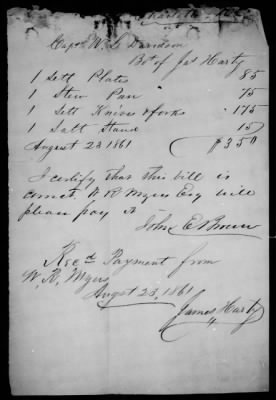 Charlotte
Capt W. L. Davidson
Bot of Jas Harty
1 Sett Plates 85
1 Stew Pan 75
1 Sett Knives & forks 175
1 Salt Stand 15
August 23 1861 $3 50
I certify that this bill is
correct W R Myers Esq will
please pay it
John E Brown
Recd Payment from
W. R. Myers
August 23, 1861
James Harty